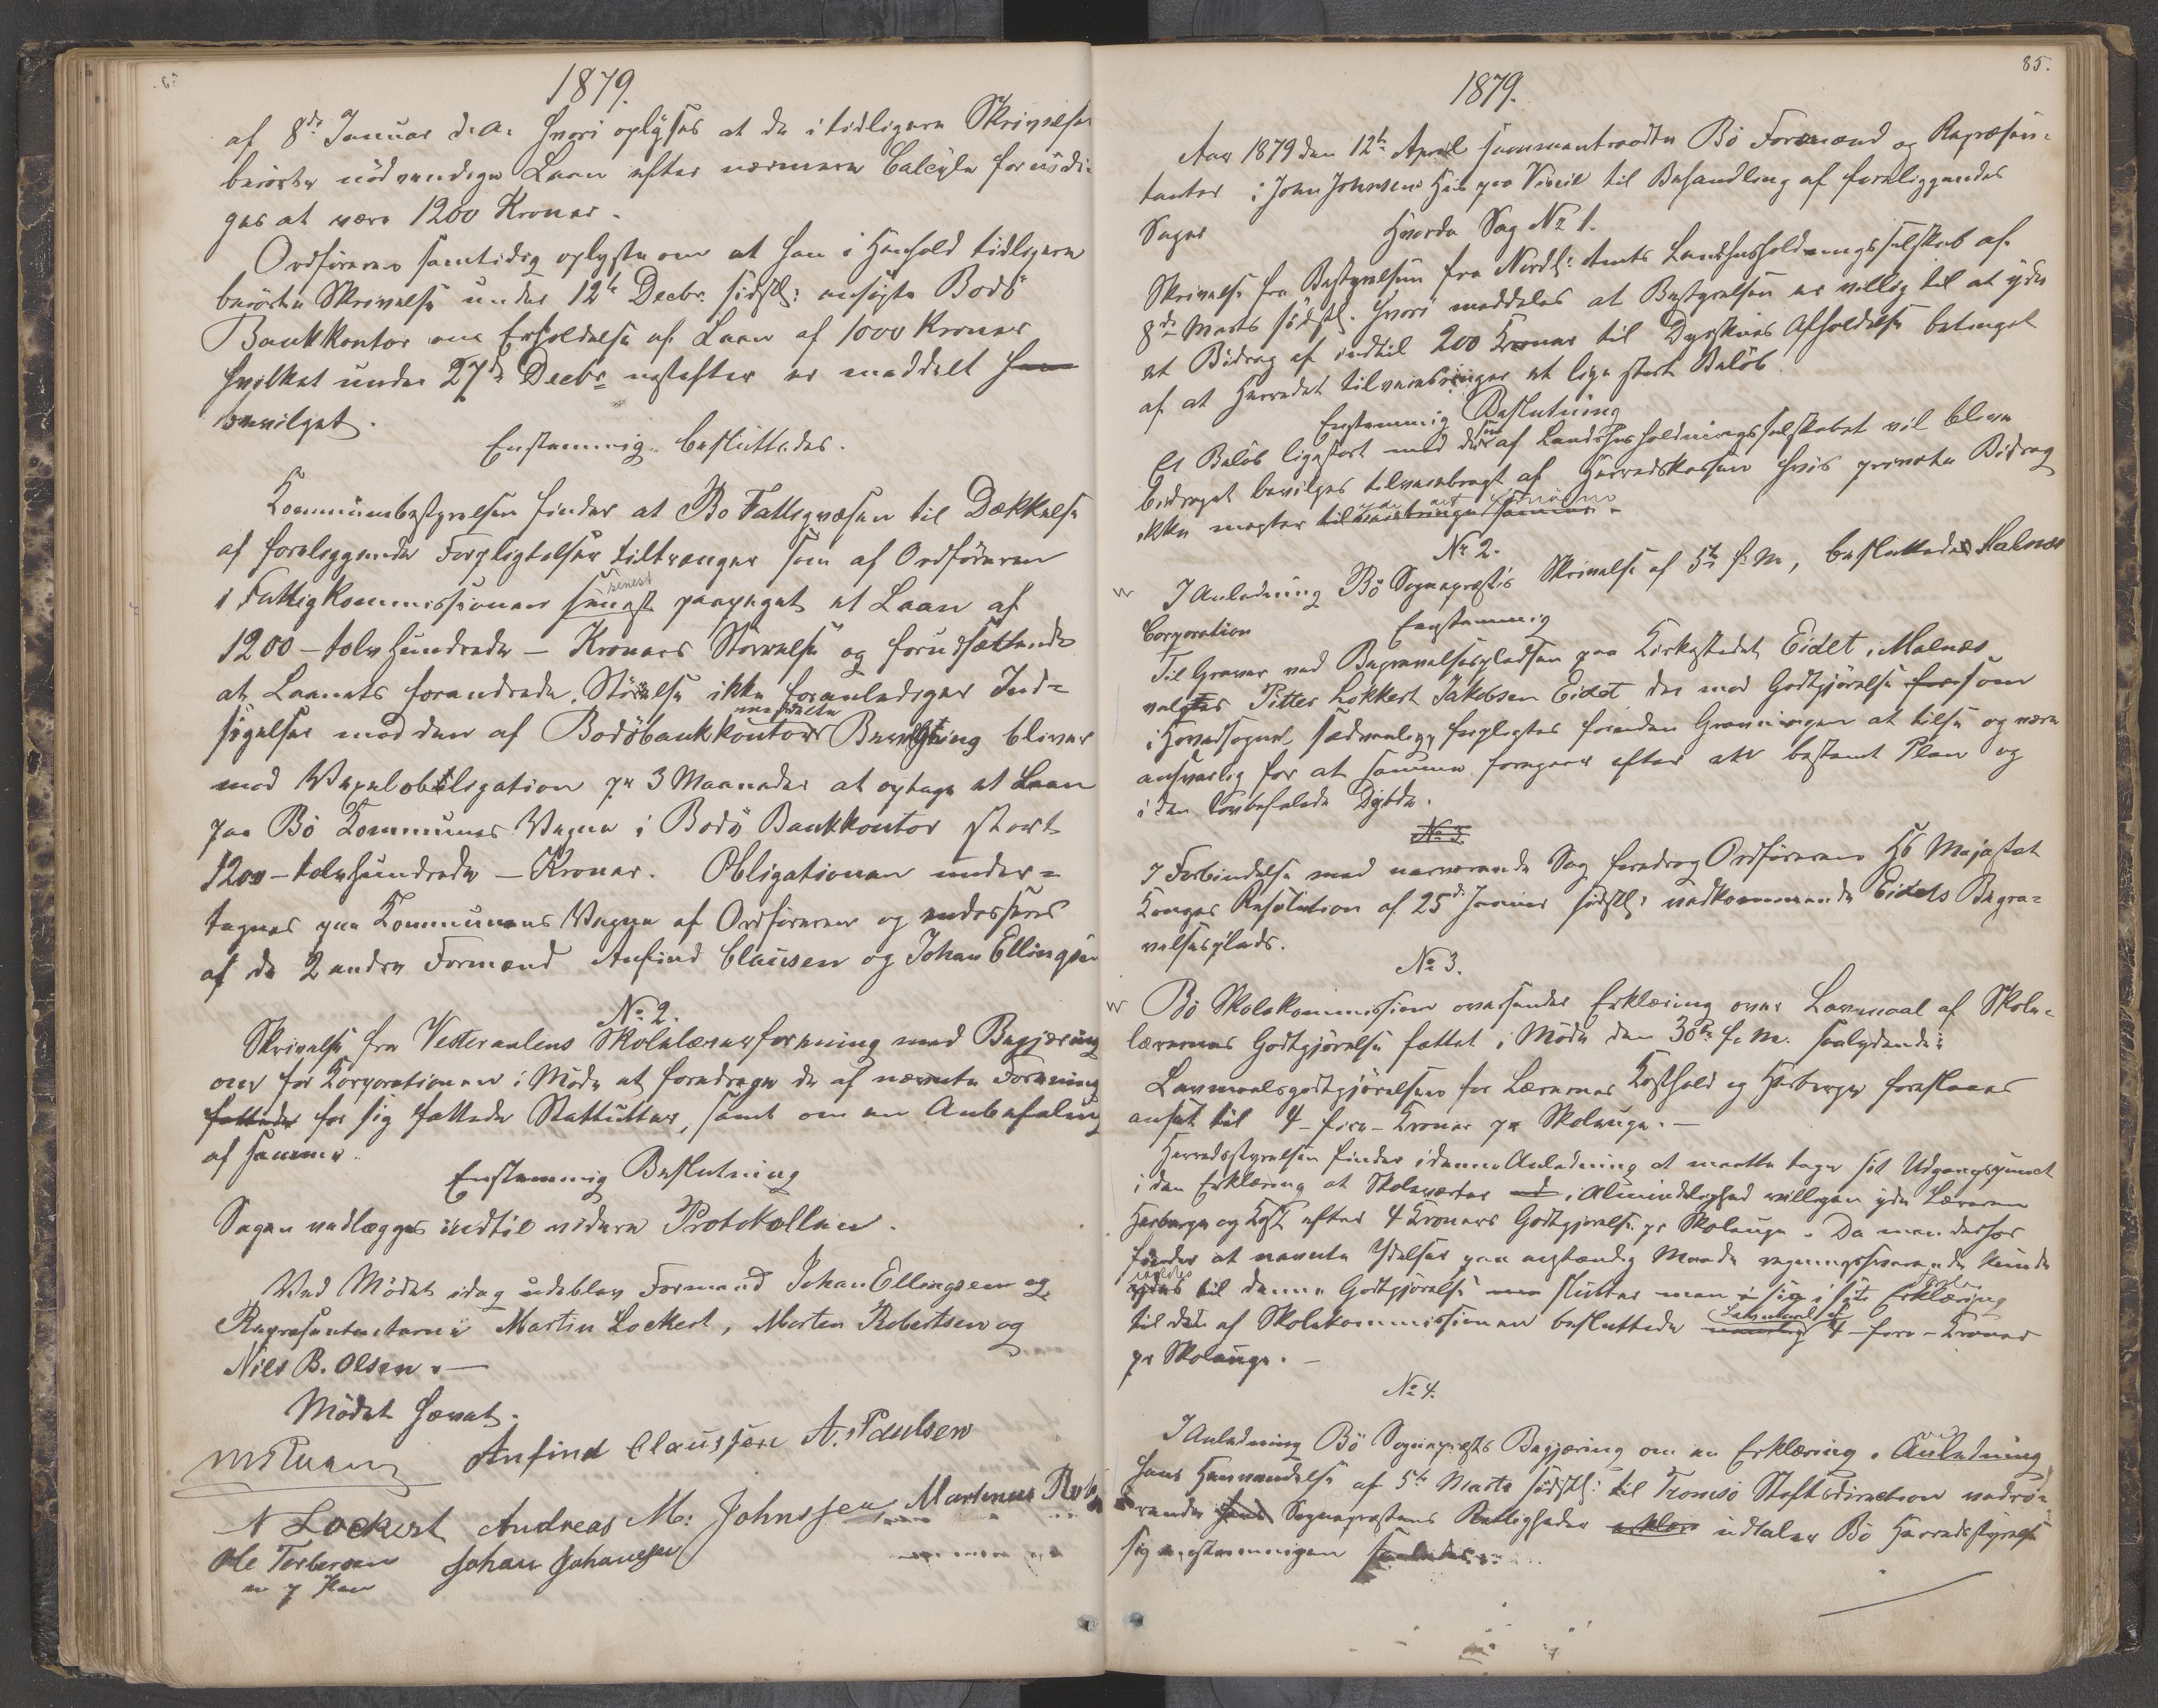 1879.
af 8de Januar d.a. hvori oplyses at de i tidligere Skrivelse
berørte nødvendige Laan efter nærmere Calcyle fornødi-
ges at være 1200 Kroner.
Ordføreren samtidig oplyste om at han i Henhold tidligere
berørte Skrivelse under 12te Decbr. sidstl: ansøgte Bodø
Bankkontor om Erholdelse af Laan af 1000 Kroner
hvilket under 27de Decbr næstefter er meddelt
bevilget.
Enstemmig besluttedes.
Kommunebestyrelsen finder at Bø Fattigvæsen til Dækkelse
af foreliggende Forpligtelser tiltrænger som af Ordføreren
i Fattigkommissionen senest paapeget et Laan af
1200 – tolv Hundrede – Kroners Størrelse og forudsættende
at Laanets forandrede Størrelse ikke foranlediger Ind-
sigelser mod den af Bodøbankkontor meddelte Bevilgning bliver
mod Vexelobligation pr 3 Maaneder at optage et Laan
paa Bø Kommunes Vegne i Bodø Bankkontor stort
1200 – tolvhundrede – Kroner. Obligationen under-
tegnes paa Kommunens Vegne af Ordføreren og endosseres
af de 2 andre Formænd Anfind Clausen og Johan Ellingsen
No 2.
Skrivelse fra Vesteraalens Skolelærerforening med Begjæring
om for Korporationen i Møde at foredrage de af nævnte Forening
fattede for sig fattede Statutter, samt om en Anbefaling
af samme.
Enstemmig Beslutning
Sagen vedlægges indtil videre Protokollen.
Ved Mødet idag udeblev Formand Johan Ellingsen og
Repræsentanterne Martin Lockert, Morten Robertsen og
Nils B. Olsen. —
Mødet hævet.
Anfind Claussen A. Paulsen
N Lockert Andreas M: Johnssen Martinus
Ole Torbersen Johan Johansen
m 7 Pen
85.
1879.
Aar 1879 den 12te April sammentraadte Bø Formænd og Repræsen-
tanter i John Johnsens Hus paa Vinie til Behandling af foreliggende
Sager Hvorda Sag No 1.
Skrivelse fra Bestyrelsen fra Nordl: Amts Landhusholdningsselskab af
8de Marts sidstl. hvori meddeles at Bestyrelsen er villig til at yde
et Bidrag af indtil 200 Kroner til Dyrskues Afholdelse betinget
af at Herredet tilveiebringer et lige stort Beløb.
Enstemmig Beslutning
Et Beløb ligestort med det som af Landhusholdningsselskabet vil blive
bidraget bevilges tilveiebragt af Herredskassen hvis private Bidrag
ikke magter tilveiebringe samme.
No 2.
I Anledning Bø Sogneprests Skrivelse af 5te f. M, besluttedes Malnes
Corporation Enstemmig
Til Graver ved Begravelsespladsen paa Kirkestedet Eidet i Malnes
valgtes Pitter Lokkert Jakobsen Eidet der mod Godtgjørelse som
i Hovedsognet sædvanlig forpligtes forinden Gravningen at tilse og være
ansvarlig for at samme foregaar efter bestemt Plan og
i den lovbefalede Dybde.
No 3.
I Forbindelse med nærværende Sag foredrog Ordføreren Hs Majestæt
Konges Resolution af 25de Januar sidstl: vedkommende Eidets Begra-
velsesplads.
No 3.
Bø Skolekommission oversender Erklæring over Lovmaal af Skole-
lærernes Godtgjørelse fattet i Møde den 30te f. M. saalydende:
Lavmaalsgodtgjørelsen for Lærernes Kosthold og Herberge foreslaaes
ansat til 4 – fire – Kroner pr Skoleuge. —
Herredsstyrelsen finder i denne Anledning at maatte tage sit Udgangspunct
i den Erklæring at Skoleværter i Almindelighed villigen yde Læreren
Herberge og Kost efter 4 Kroners Godtgjørelse pr Skoleuge. Da man derfor
finder at nævnte Ydelser paa anstændig Maade regningssvarende kunde
ydes til denne Godtgjørelse slutter man sig i sin Erklæring
til det af Skolekommissionen besluttede Lavmaal af 4 – fire – Kroner
pr Skoleuge. —
No 4.
I Anledning Bø Sogneprests Begjæring om en Erklæring i Anledning
hans Henvendelse af 5te Marts sidstl: til Tromsø Stiftsdirection vedrø-
rende Sogneprestens Rettigheder udtaler Bø Herredsstyrelse
sig enstemmigen saaledes: